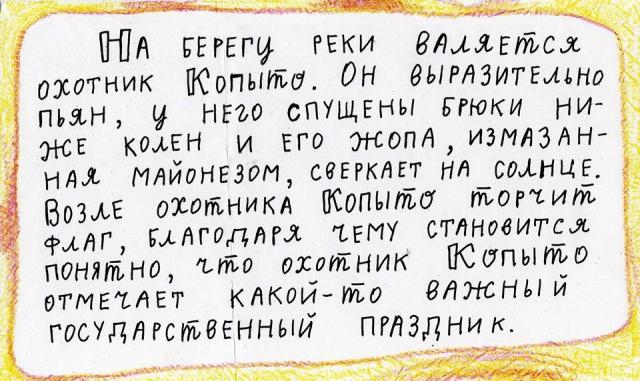 На берегу реки валяется
охотник Копыто. Он выразительно
пьян, у него спущены брюки ни-
же колен и его жопа, измазан-
ная майонезом, сверкает на солнце.
Возле охотника Копыто торчит
флаг, благодаря чему становится
понятно, что охотник Копыто
отмечает какой-то важный
государственный праздник.